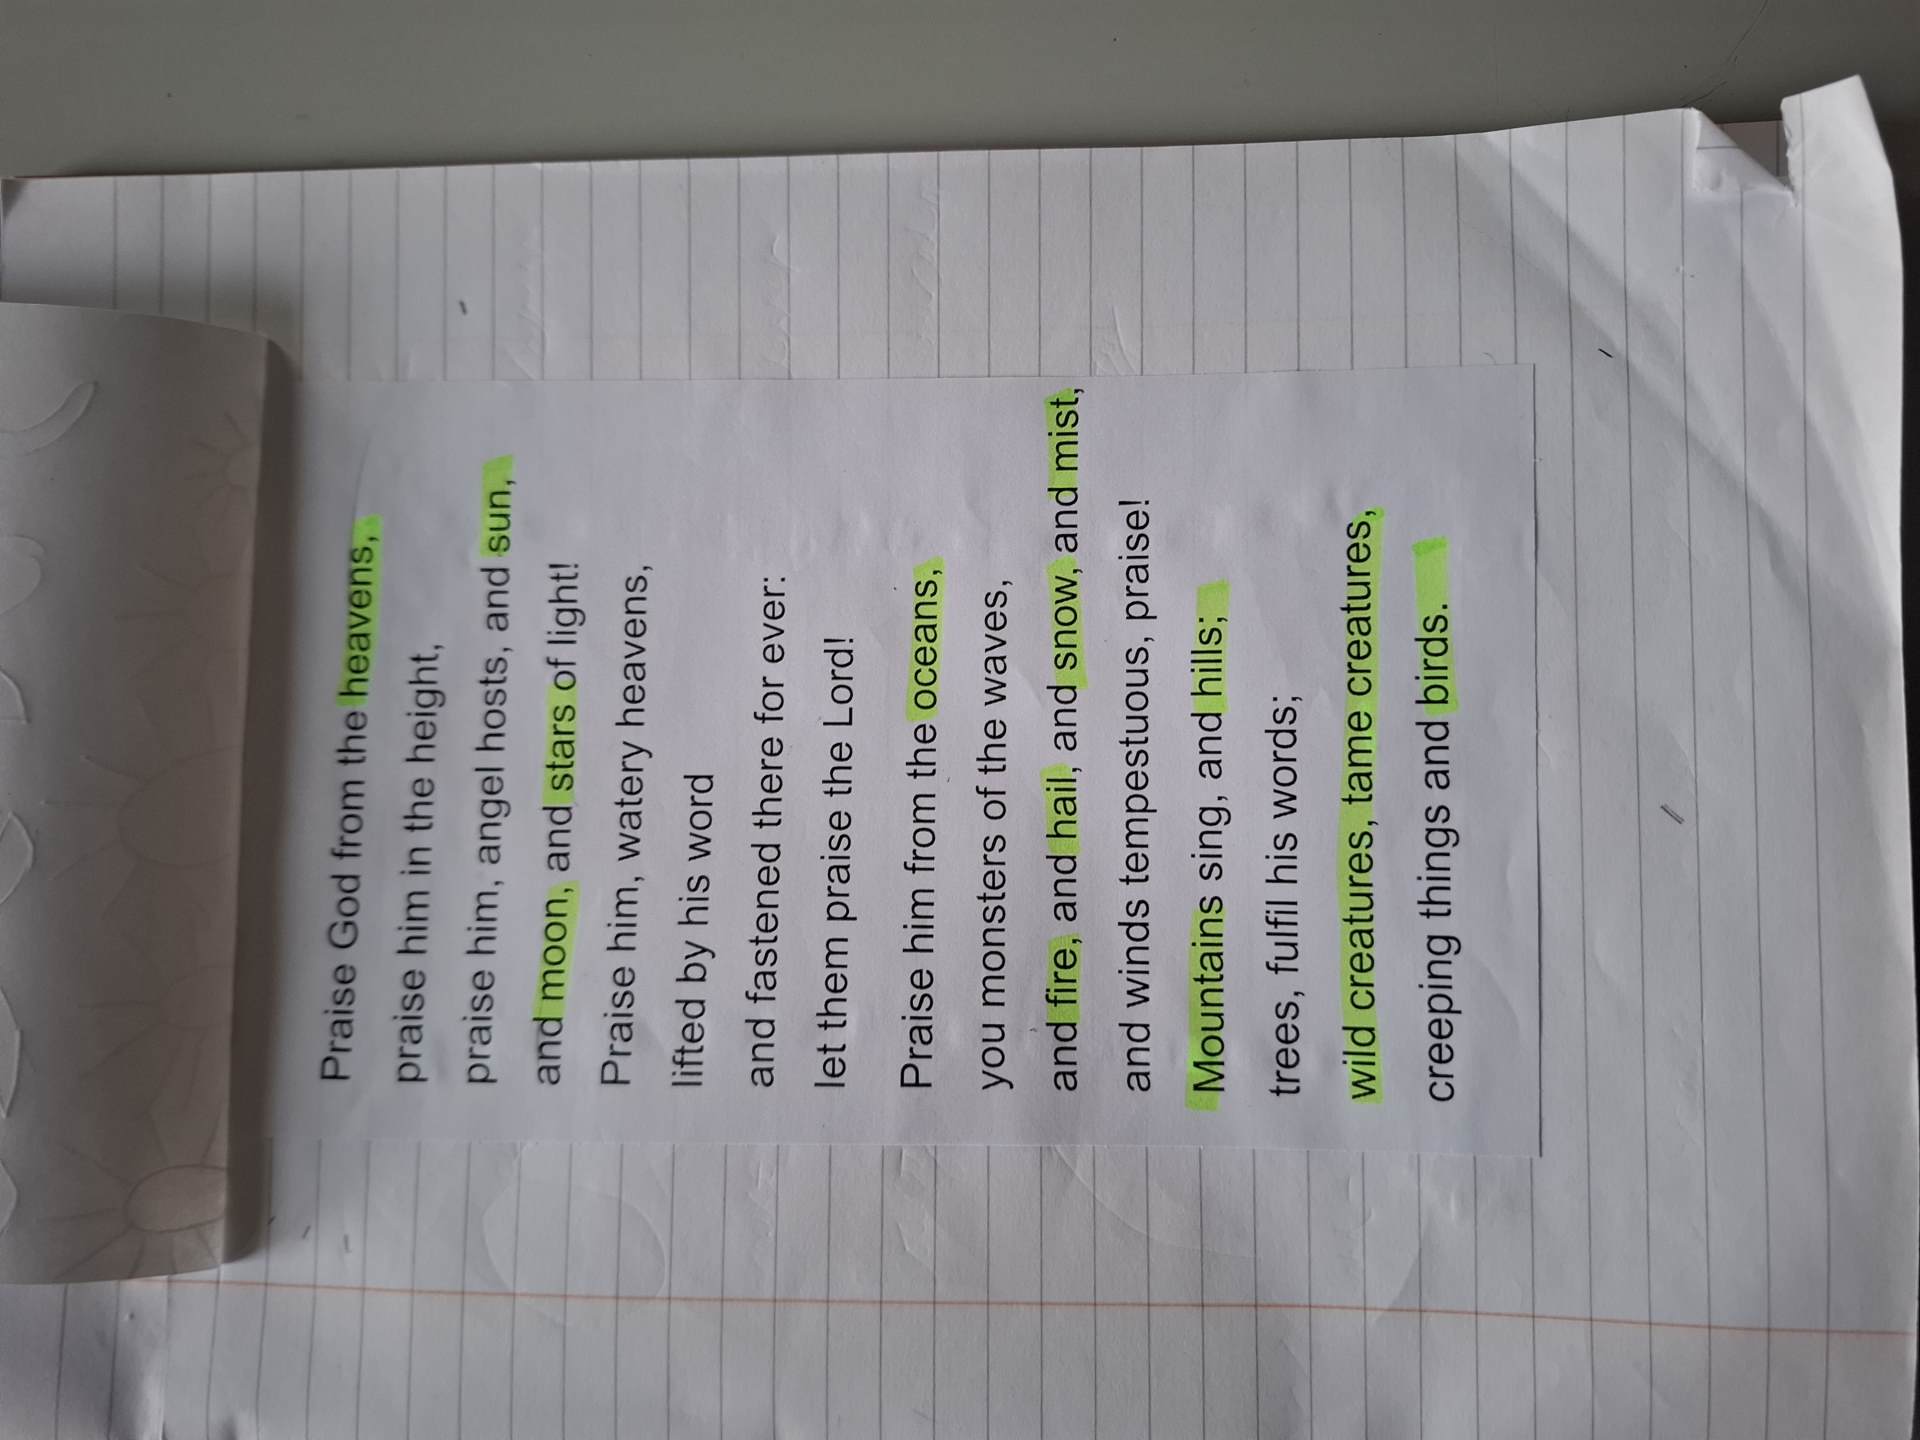 Praise God from the heavens,
praise him in the height,
praise him, angel hosts, and sun,
and moon, and stars of light!
Praise him, watery heavens,
lifted by his word
and fastened there for ever:
let them praise the Lord!
Praise him from the oceans,
you monsters of the waves,
and fire, and hail, and snow, and mist,
and winds tempestuous, praise!
Mountains sing, and hills;
trees, fulfil his words;
wild creatures, tame creatures,
creeping things and birds.